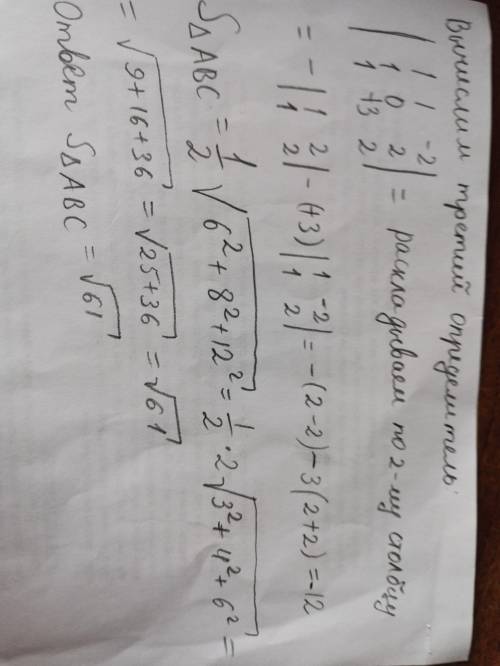 Вычислим третий определитель:
| 1 1 -2 |
| 1 0 2 | = раскладываем по 2-му столбцу
| 1 +3 2 |
= - | 1 2 | - (+3) | 1 -2 | = -(2-2) - 3(2+2) = -12
| 1 2 | | 1 2 |
S△ABC = 1/2 √6² + 8² + 12² = 1/2 · 2 √3² + 4² + 6² =
= √9+16+36 = √25+36 = √61
Ответ S△ABC = √61